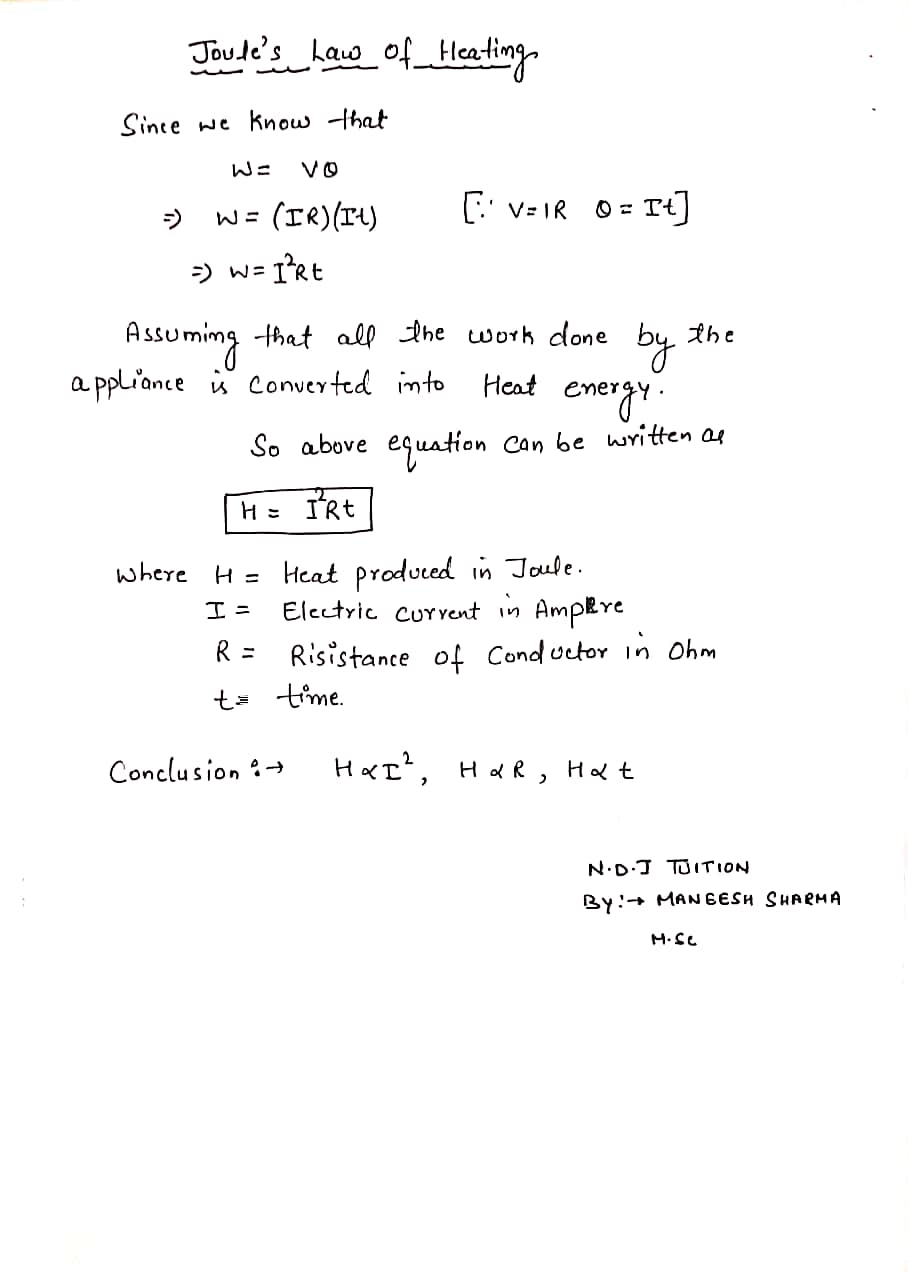 Joule's Law of Heating
Since we know that
W = VQ
⇒ W = (IR)(It) [∵ V=IR Q = It]
⇒ W = I²Rt
Assuming that all the work done by the
appliance is converted into Heat energy.
So above equation can be written as
H = I²Rt
where H = Heat produced in Joule.
I = Electric current in Ampere
R = Risistance of Conductor in Ohm
t = time.
Conclusion :→ H ∝ I², H ∝ R, H ∝ t
N.D.J TUITION
By :→ MANGESH SHARMA
M.Sc